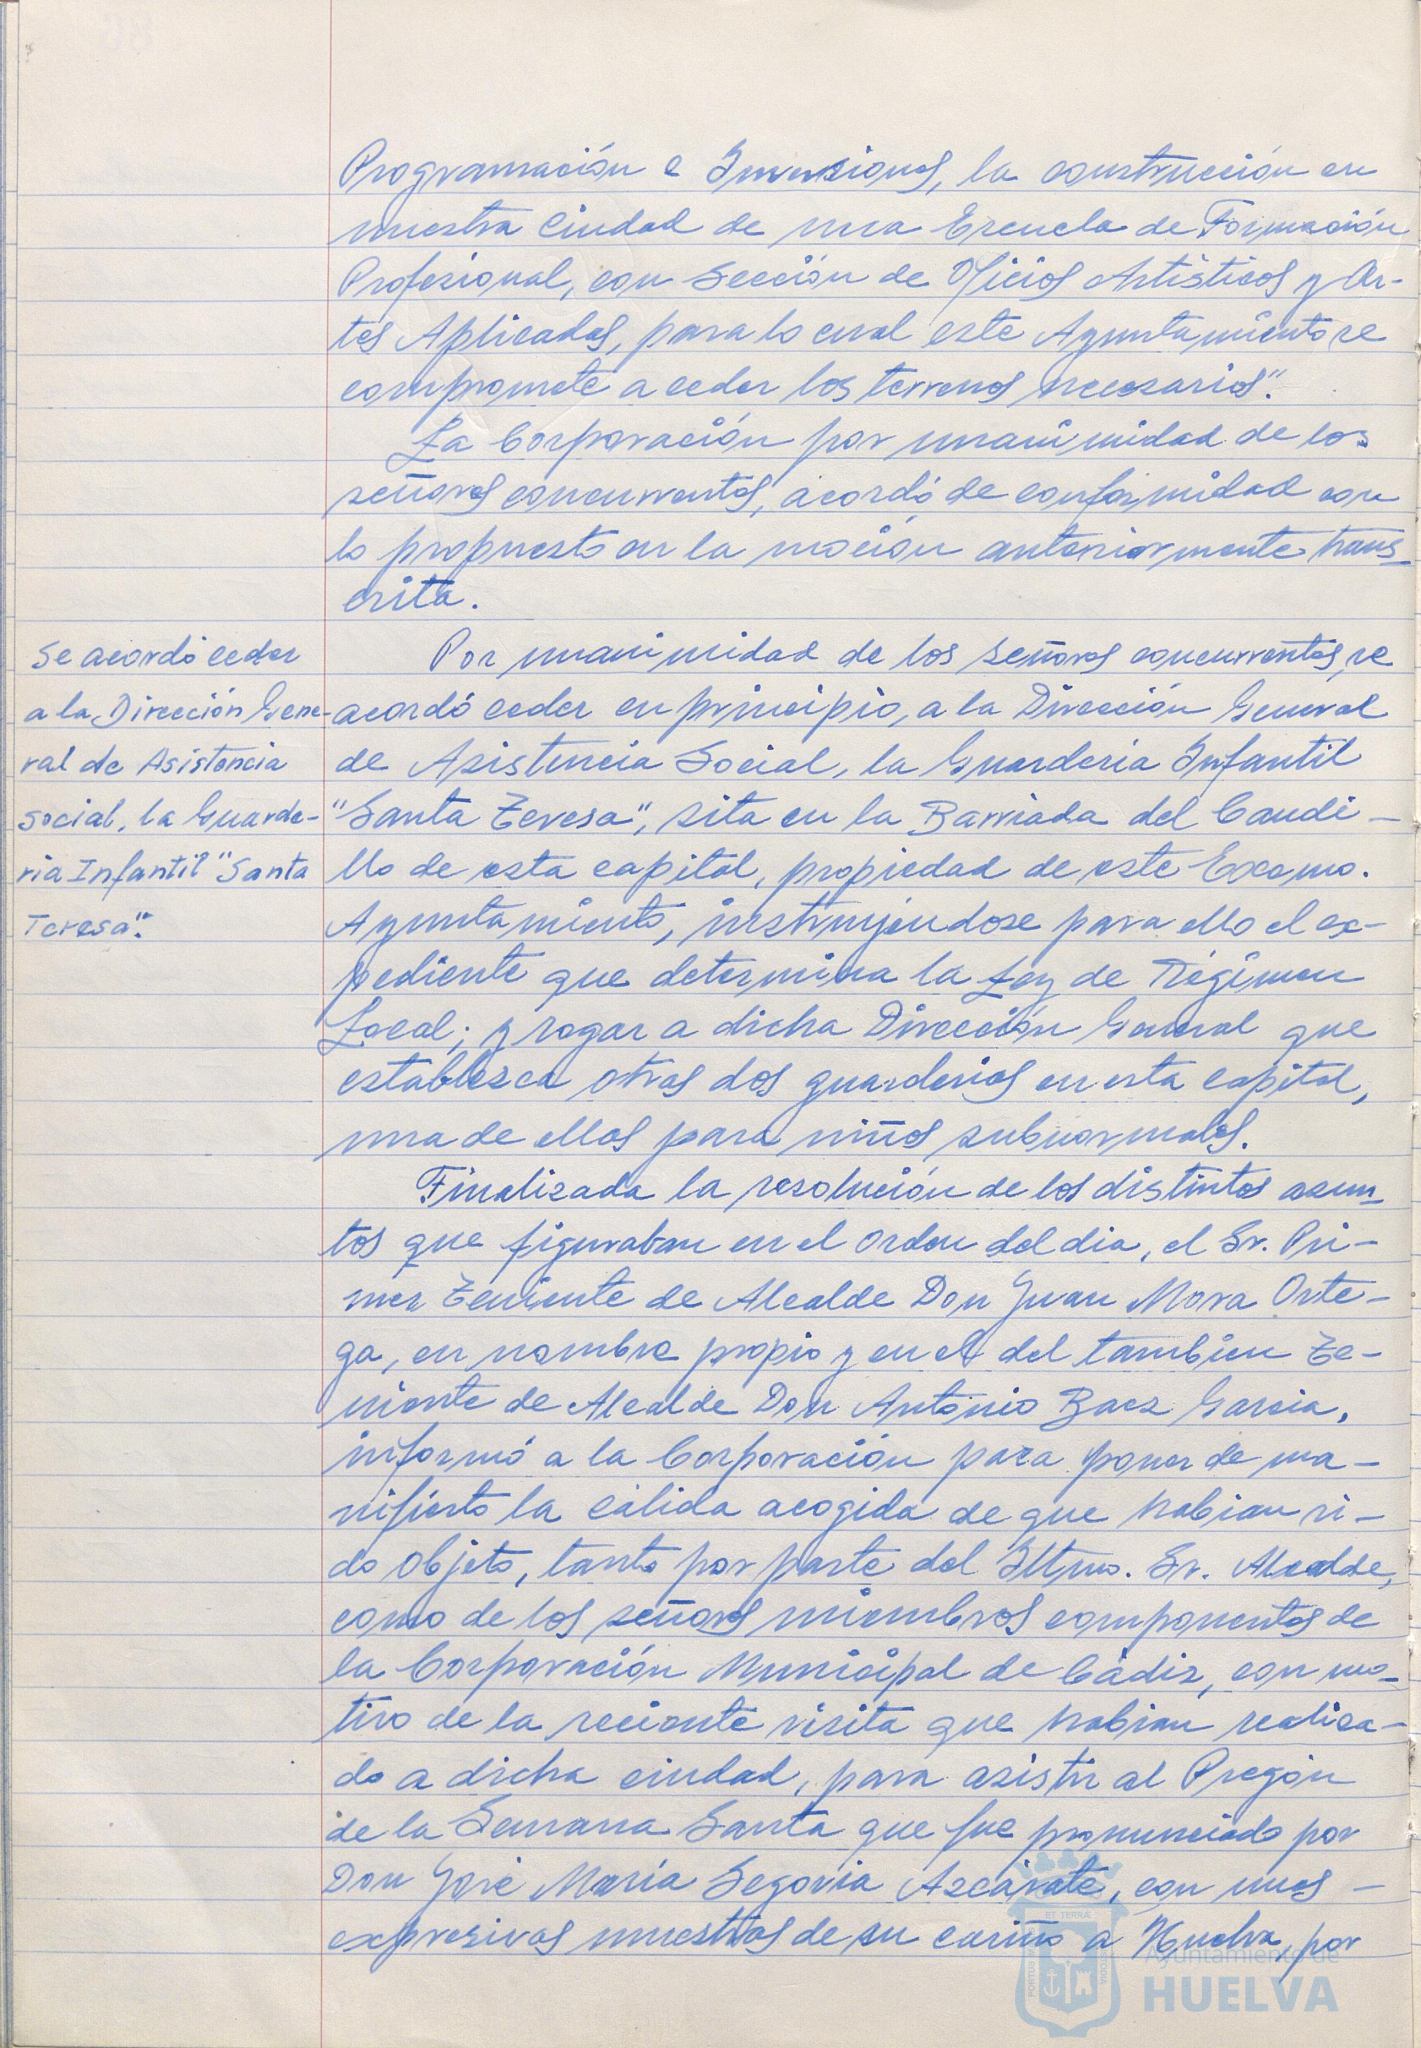 Programación e Inversiones, la construcción en
nuestra Ciudad de una Escuela de Formación
Profesional, con Sección de Oficios Artísticos y Ar-
tes Aplicadas, para lo cual este Ayuntamiento se
compromete a ceder los terrenos necesarios".
La Corporación por unanimidad de los
señores concurrentes, acordó de conformidad con
lo propuesto en la moción anteriormente trans-
crita.
Se acordó ceder
a la Dirección Gene-
ral de Asistencia
Social, la Guarde-
ria Infantil "Santa
Teresa".
Por unanimidad de los señores concurrentes, se
acordó ceder en principio, a la Dirección General
de Asistencia Social, la Guarderia Infantil
"Santa Teresa", sita en la Barriada del Caudi-
llo de esta capital, propiedad de este Excmo.
Ayuntamiento, instruyéndose para ello el ex-
pediente que determina la Ley de Régimen
Local; y rogar a dicha Dirección General que
establezca otras dos guarderias en esta capital,
una de ellas para niños subnormales.
Finalizada la resolución de los distintos asun-
tos que figuraban en el orden del dia, el Sr. Pri-
mer Teniente de Alcalde Don Juan Mora Orte-
ga, en nombre propio y en el del tambien Te-
niente de Alcalde Don Antonio Baez Garcia,
informó a la Corporación para poner de ma-
nifiesto la cálida acogida de que habian si-
do objeto, tanto por parte del Iltmo. Sr. Alcalde,
como de los señores miembros componentes de
la Corporación Municipal de Cádiz, con mo-
tivo de la reciente visita que habian realiza-
do a dicha ciudad, para asistir al Pregón
de la Semana Santa que fue pronunciado por
Don José María Segovia Azcárate, con unas
expresivas muestras de su cariño a Huelva, por
ET TERRÆ
Ayuntamiento de
HUELVA